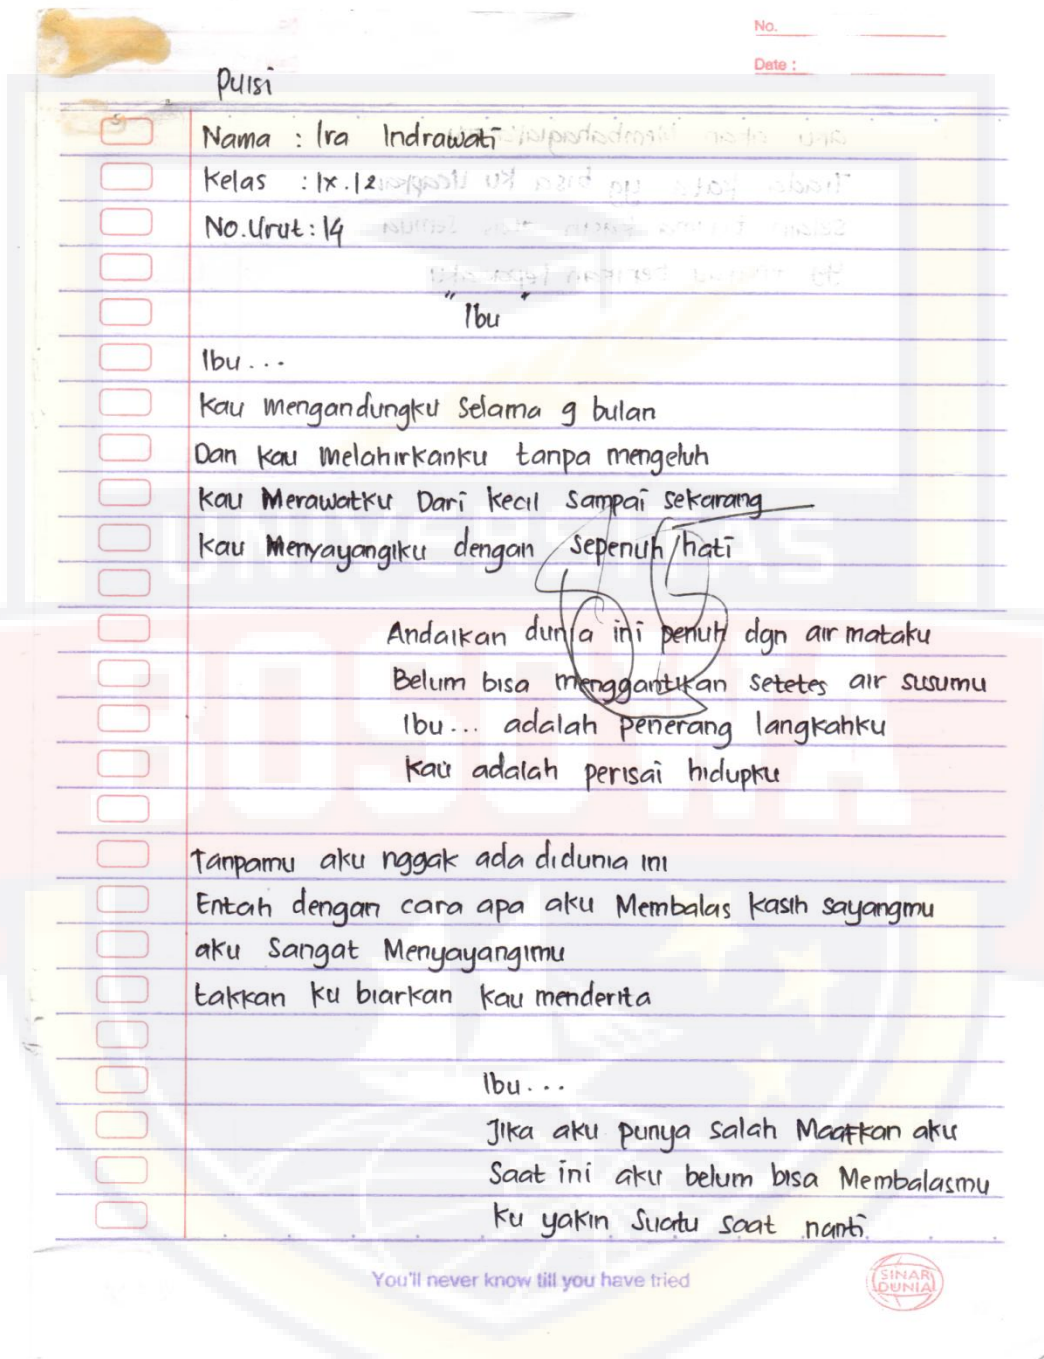 No.
Date :
Puisi
Nama : Ira Indrawati
Kelas : IX.12
No.Urut : 14
"Ibu"
Ibu...
Kau mengandungku Selama 9 bulan
Dan kau melahirkanku tanpa mengeluh
Kau Merawatku Dari kecil Sampai sekarang
Kau Menyayangiku dengan sepenuh hati
Andaikan dunia ini penuh dgn air mataku
Belum bisa menggantikan setetes air susumu
Ibu... adalah penerang langkahku
Kau adalah perisai hidupku
Tanpamu aku nggak ada didunia ini
Entah dengan cara apa aku Membalas kasih sayangmu
aku Sangat Menyayangimu
takkan ku biarkan kau menderita
Ibu...
Jika aku punya salah Maafkan aku
Saat ini aku belum bisa Membalasmu
ku yakin Suatu saat nanti
You'll never know till you have tried
SINAR
DUNIA
UNIVERSITAS
BOSOWA